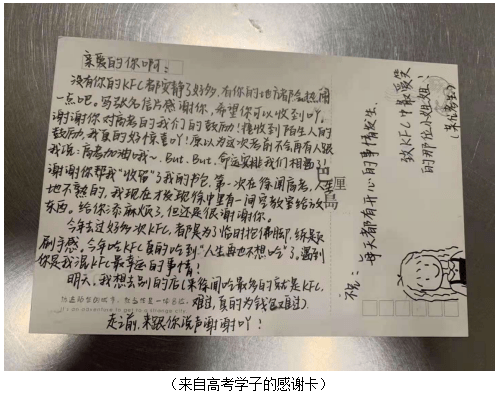 亲爱的你啊：
没有你的KFC都安静了好多，有你的地方都会热闹
一点吧。写张名信片感谢你，希望你可以收到吖。
谢谢你对高考的我们的鼓励！镬收到陌生人的
鼓励，我真的好惊喜吖！原以为这次考前不会再有人跟
我说：高考加油哦~. But. But. 命运安排我们相遇了！
谢谢你帮我“收留”了我的书包，第一次在徐闻高考，人生
地不熟的，我现在才发现徐中里有一间写教室给放
东西。给你添麻烦了，但还是很谢谢你。
今年去过好多次KFC，都是为了临时抱佛脚，练
刷手感。今年吃KFC真的吃到“人生再也不想吃”了，遇到
你是我混KFC最幸运的事情！
明天，我想去别的店（来徐闻吃最多的就是KFC，
难过，真的为钱包难过）。
走之前，来跟你说声谢谢吖！
巴厘岛
致KFC中最爱笑
的那位小姐姐：
（来自考生）
祝：
每天都有开心的事情发生。
It's an adventure to get to a strange city
（来自高考学子的感谢卡）